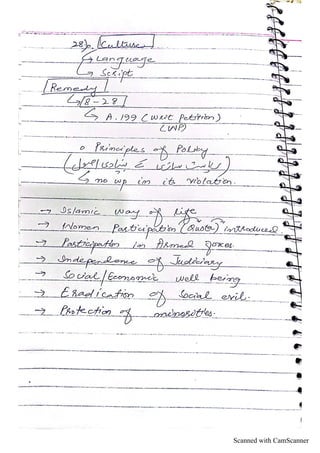 28). Culture
→ Language
→ Script
Remedy
→ 8-28
→ A.199 (Writ Petition)
(WP)
○ Principles of Policy
(ریاست سازی کے بنیادی اصول)
→ no wp in its violation.
→ Islamic way of life
→ Women Participation (Quota) introduced
→ Participation in Armed forces.
→ Independence of Judiciary
→ Social/Economic well being
→ Eradication of Social evil.
→ Protection of minorities.
Scanned with CamScanner